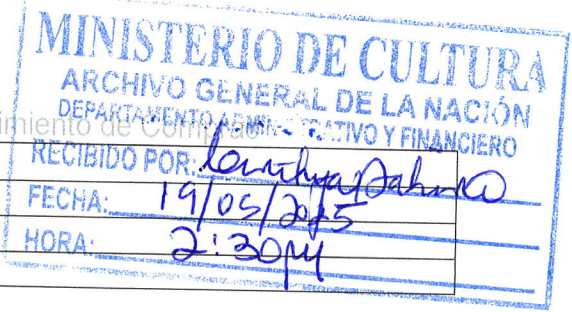 MINISTERIO DE CULTURA
ARCHIVO GENERAL DE LA NACIÓN
DEPARTAMENTO ADMINISTRATIVO Y FINANCIERO
imiento de Compras
RECIBIDO POR:
FECHA: 19/05/2025
HORA: 2:30PM